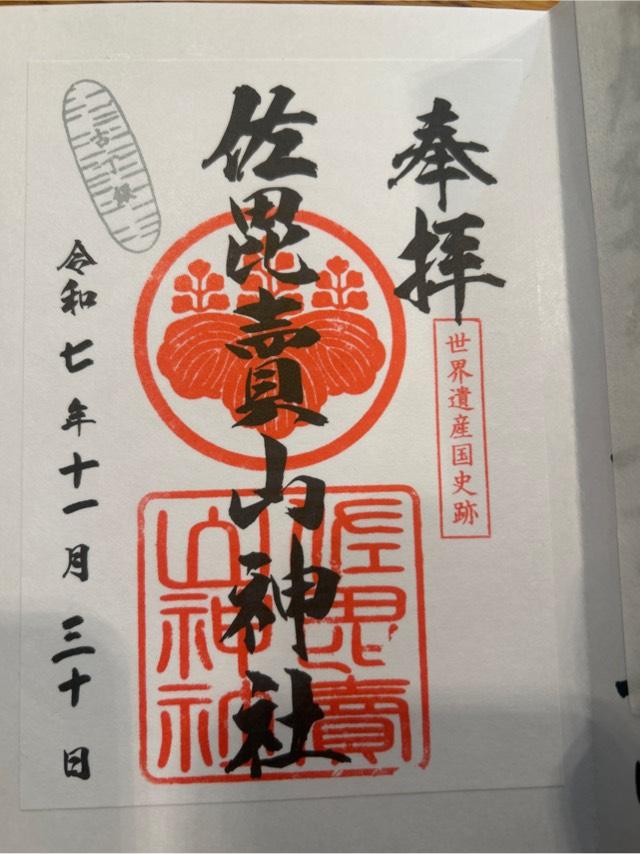 奉拝
世界遺産国史跡
佐毘賣山神社
佐毘賣
山神社
古丁銀
令和七年十一月三十日